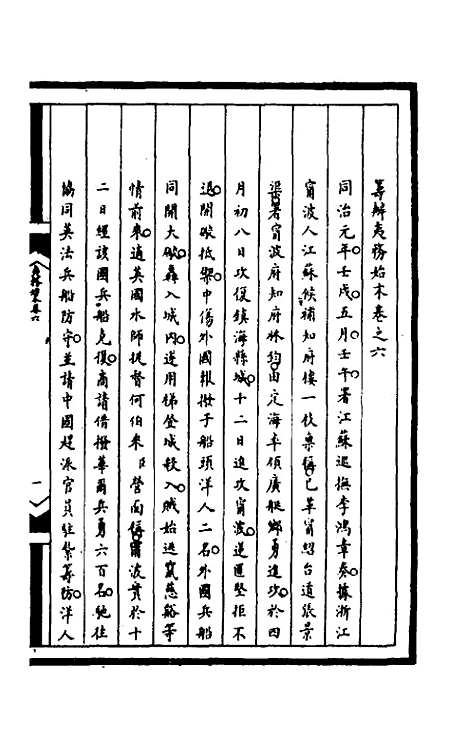 籌辦夷務始末卷之六
同治元年壬戌五月壬午署江蘇巡撫李鴻章奏據浙江
甯波人江蘇候補知府樓一枝稟稱已革甯紹台道張景
渠署甯波府知府林鈞由定海率領廣艇鄉勇進攻於四
月初八日攻復鎮海縣城十二日進攻甯波逆匪堅拒不
退開礮抵禦中傷外國報撥子船頭洋人二名外國兵船
同開大礮轟入城內逆用梯登城殺入賊始逃竄慈谿等
情前來適英國水師提督何伯來臣營面稱甯波實於十
二日經該國兵船克復商請借撥華爾兵勇六百名馳往
協同英法兵船防守並請中國趕派官員駐紮籌防洋人